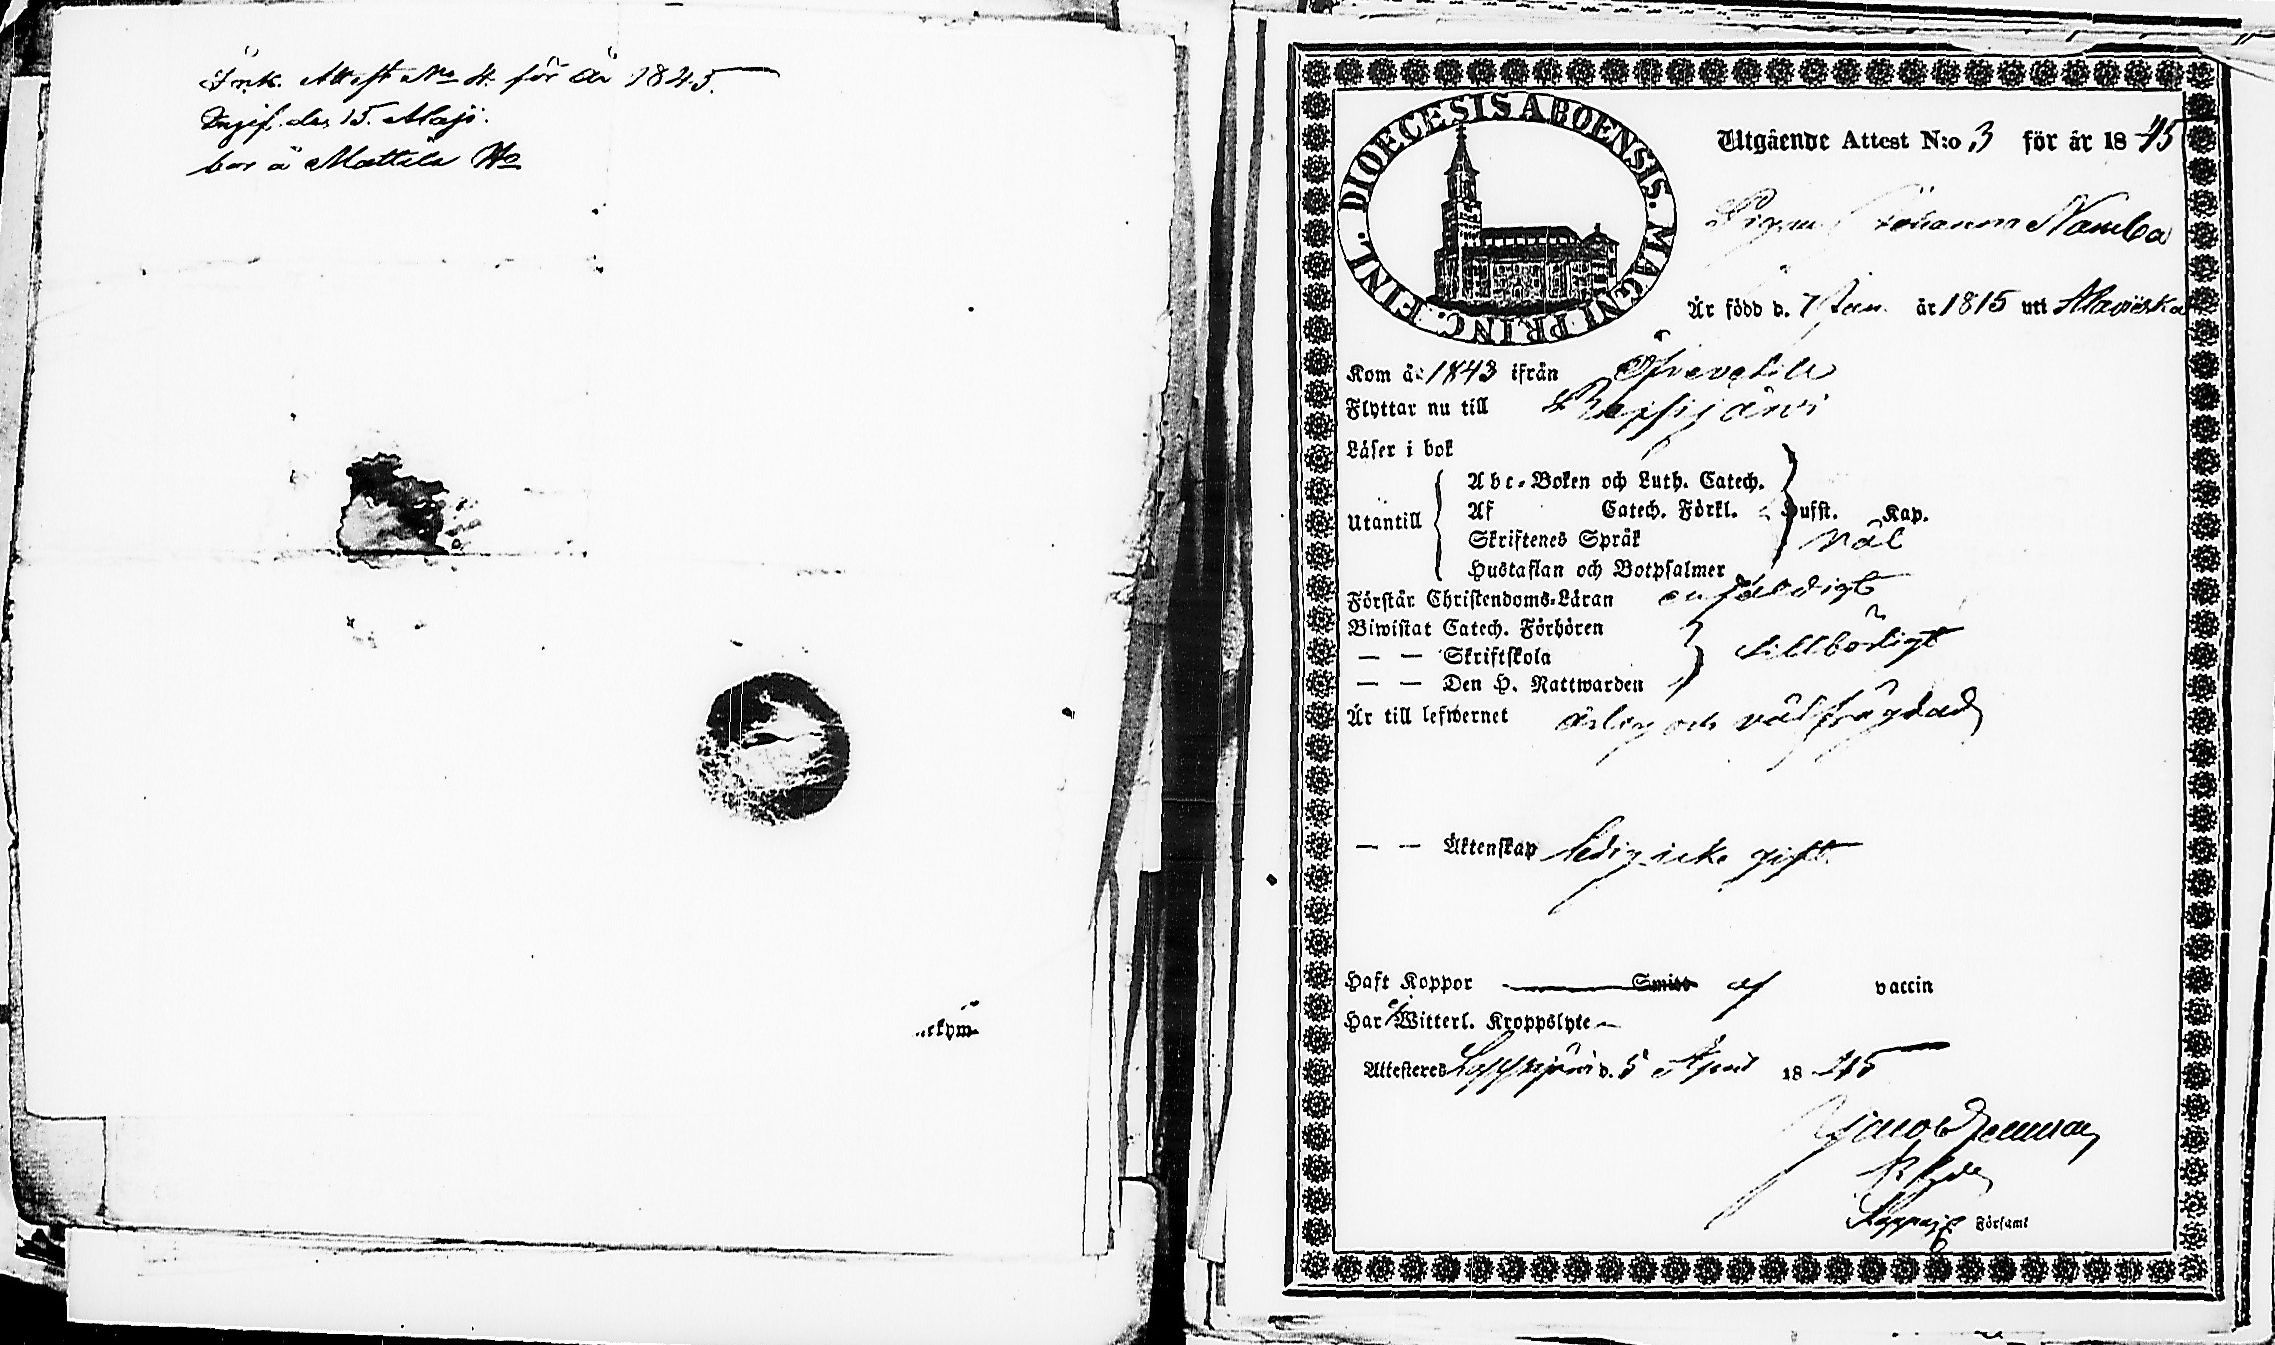 Ink. Attest No 4. för år 1845.
Ingif. den 15. Maji.
bor å Mattila Ho
DIOECESIS ABOENSIS. MAGNI PRINC. FINL.
Utgående Attest N:o 3 för år 1845
Pigan Johanna Namba
Är född d. 7 Jan. år 1815 uti Alavieska
Kom år 1843 ifrån Öfvervetila
Flyttar nu till Kappsjärvi
Läser i bok
Utantill
Abc-Boken och Luth. Catech.
Af Catech. Förkl. Hufst. Kap.
Skriftenes Språk
väl
Hustaflan och Botpsalmer
Förstår Christendoms-Läran enfaldigt
Biwistat Catech. Förhören
— — Skriftskola tillbörligt
— — Den H. Nattwarden
Är till lefwernet ärlig och välfrägdad
— — Äktenskap ledig icke gift.
Haft Koppor Smitt af vaccin
Har ej Witterl. Kroppslyte
Attesteras Lappajärvi d. 5 April 1845
Lappaj. Församl